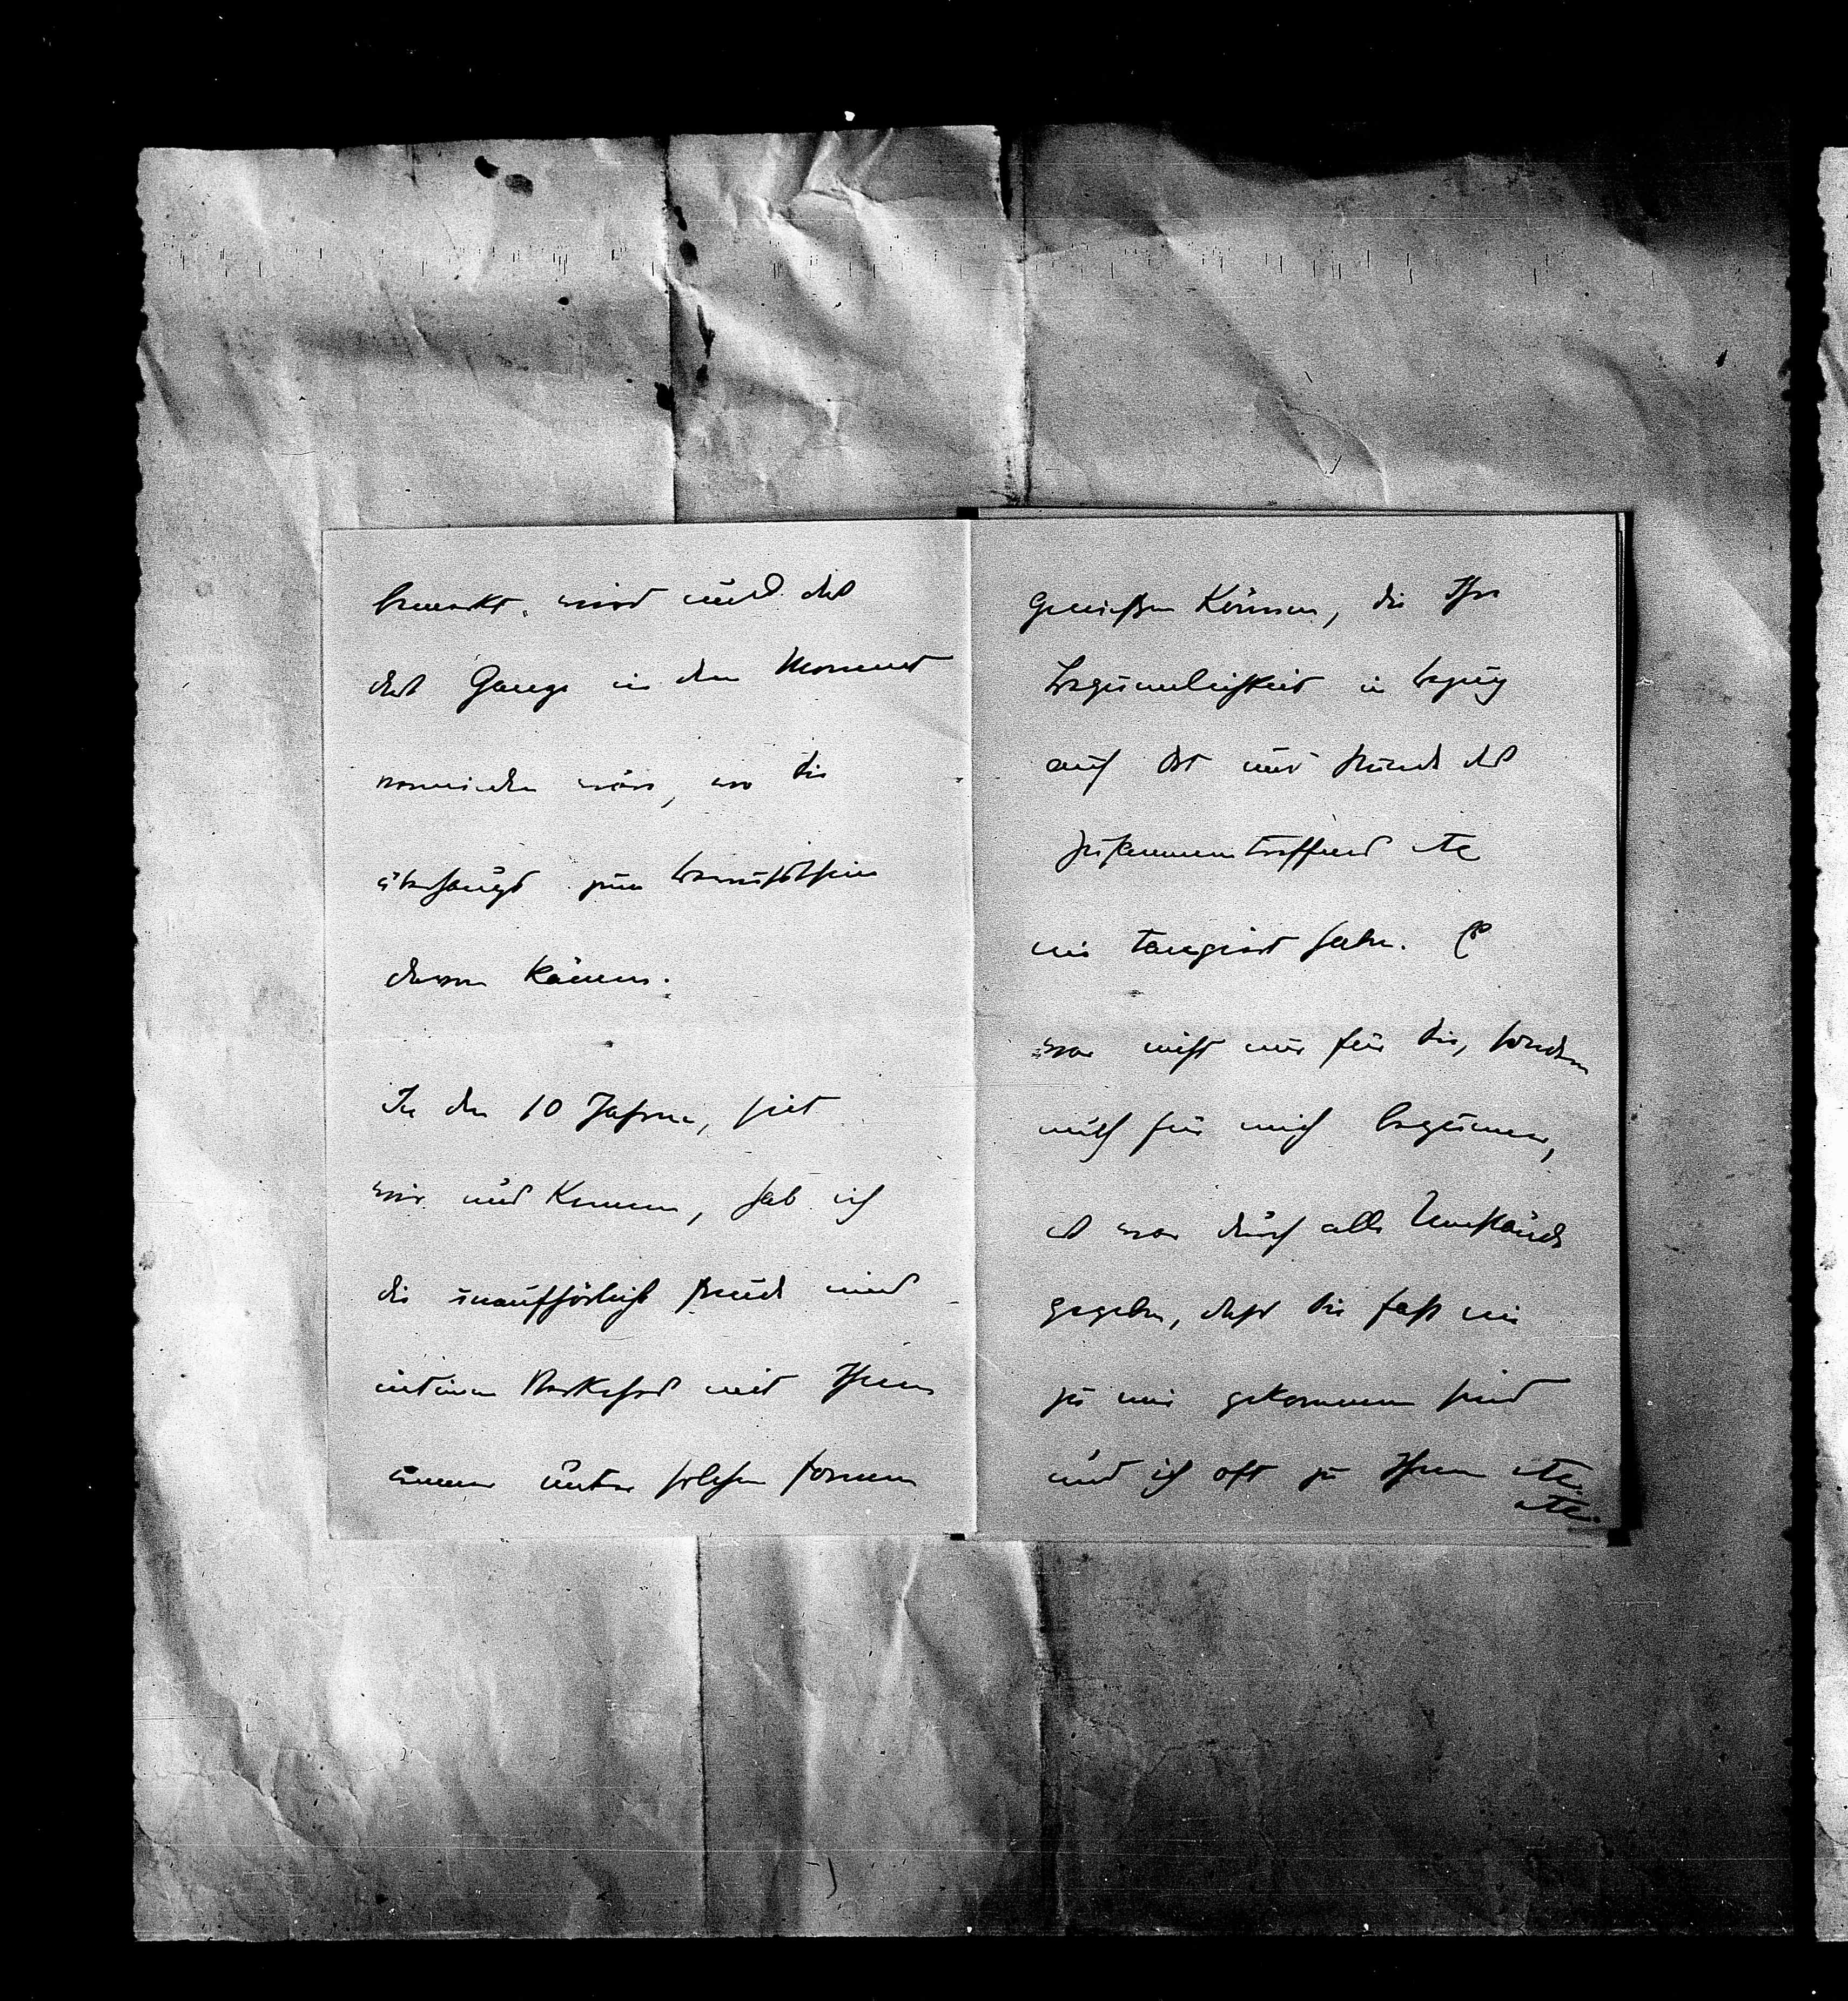 bemerkt wird und daß
das Ganze in dem Moment
vermieden wäre, wo Sie
überhaupt zum Bewußtsein
davon kämen.
In den 10 Jahren, seit
wir uns kennen, hab ich
die unaufhörliche Freude eines
intimen Verkehrs mit Ihnen
immer unter solchen Formen
genießen können, die Ihre
Bequemlichkeit in Bezug
auf Ort und Stunde des
Zusammentreffens etc
nie tangiert haben. Es
war nicht nur für Sie, sondern
auch für mich bequemer,
es war durch alle Umstände
gegeben, dass Sie fast nie
zu mir gekommen sind
und ich oft zu Ihnen etc.
etc.